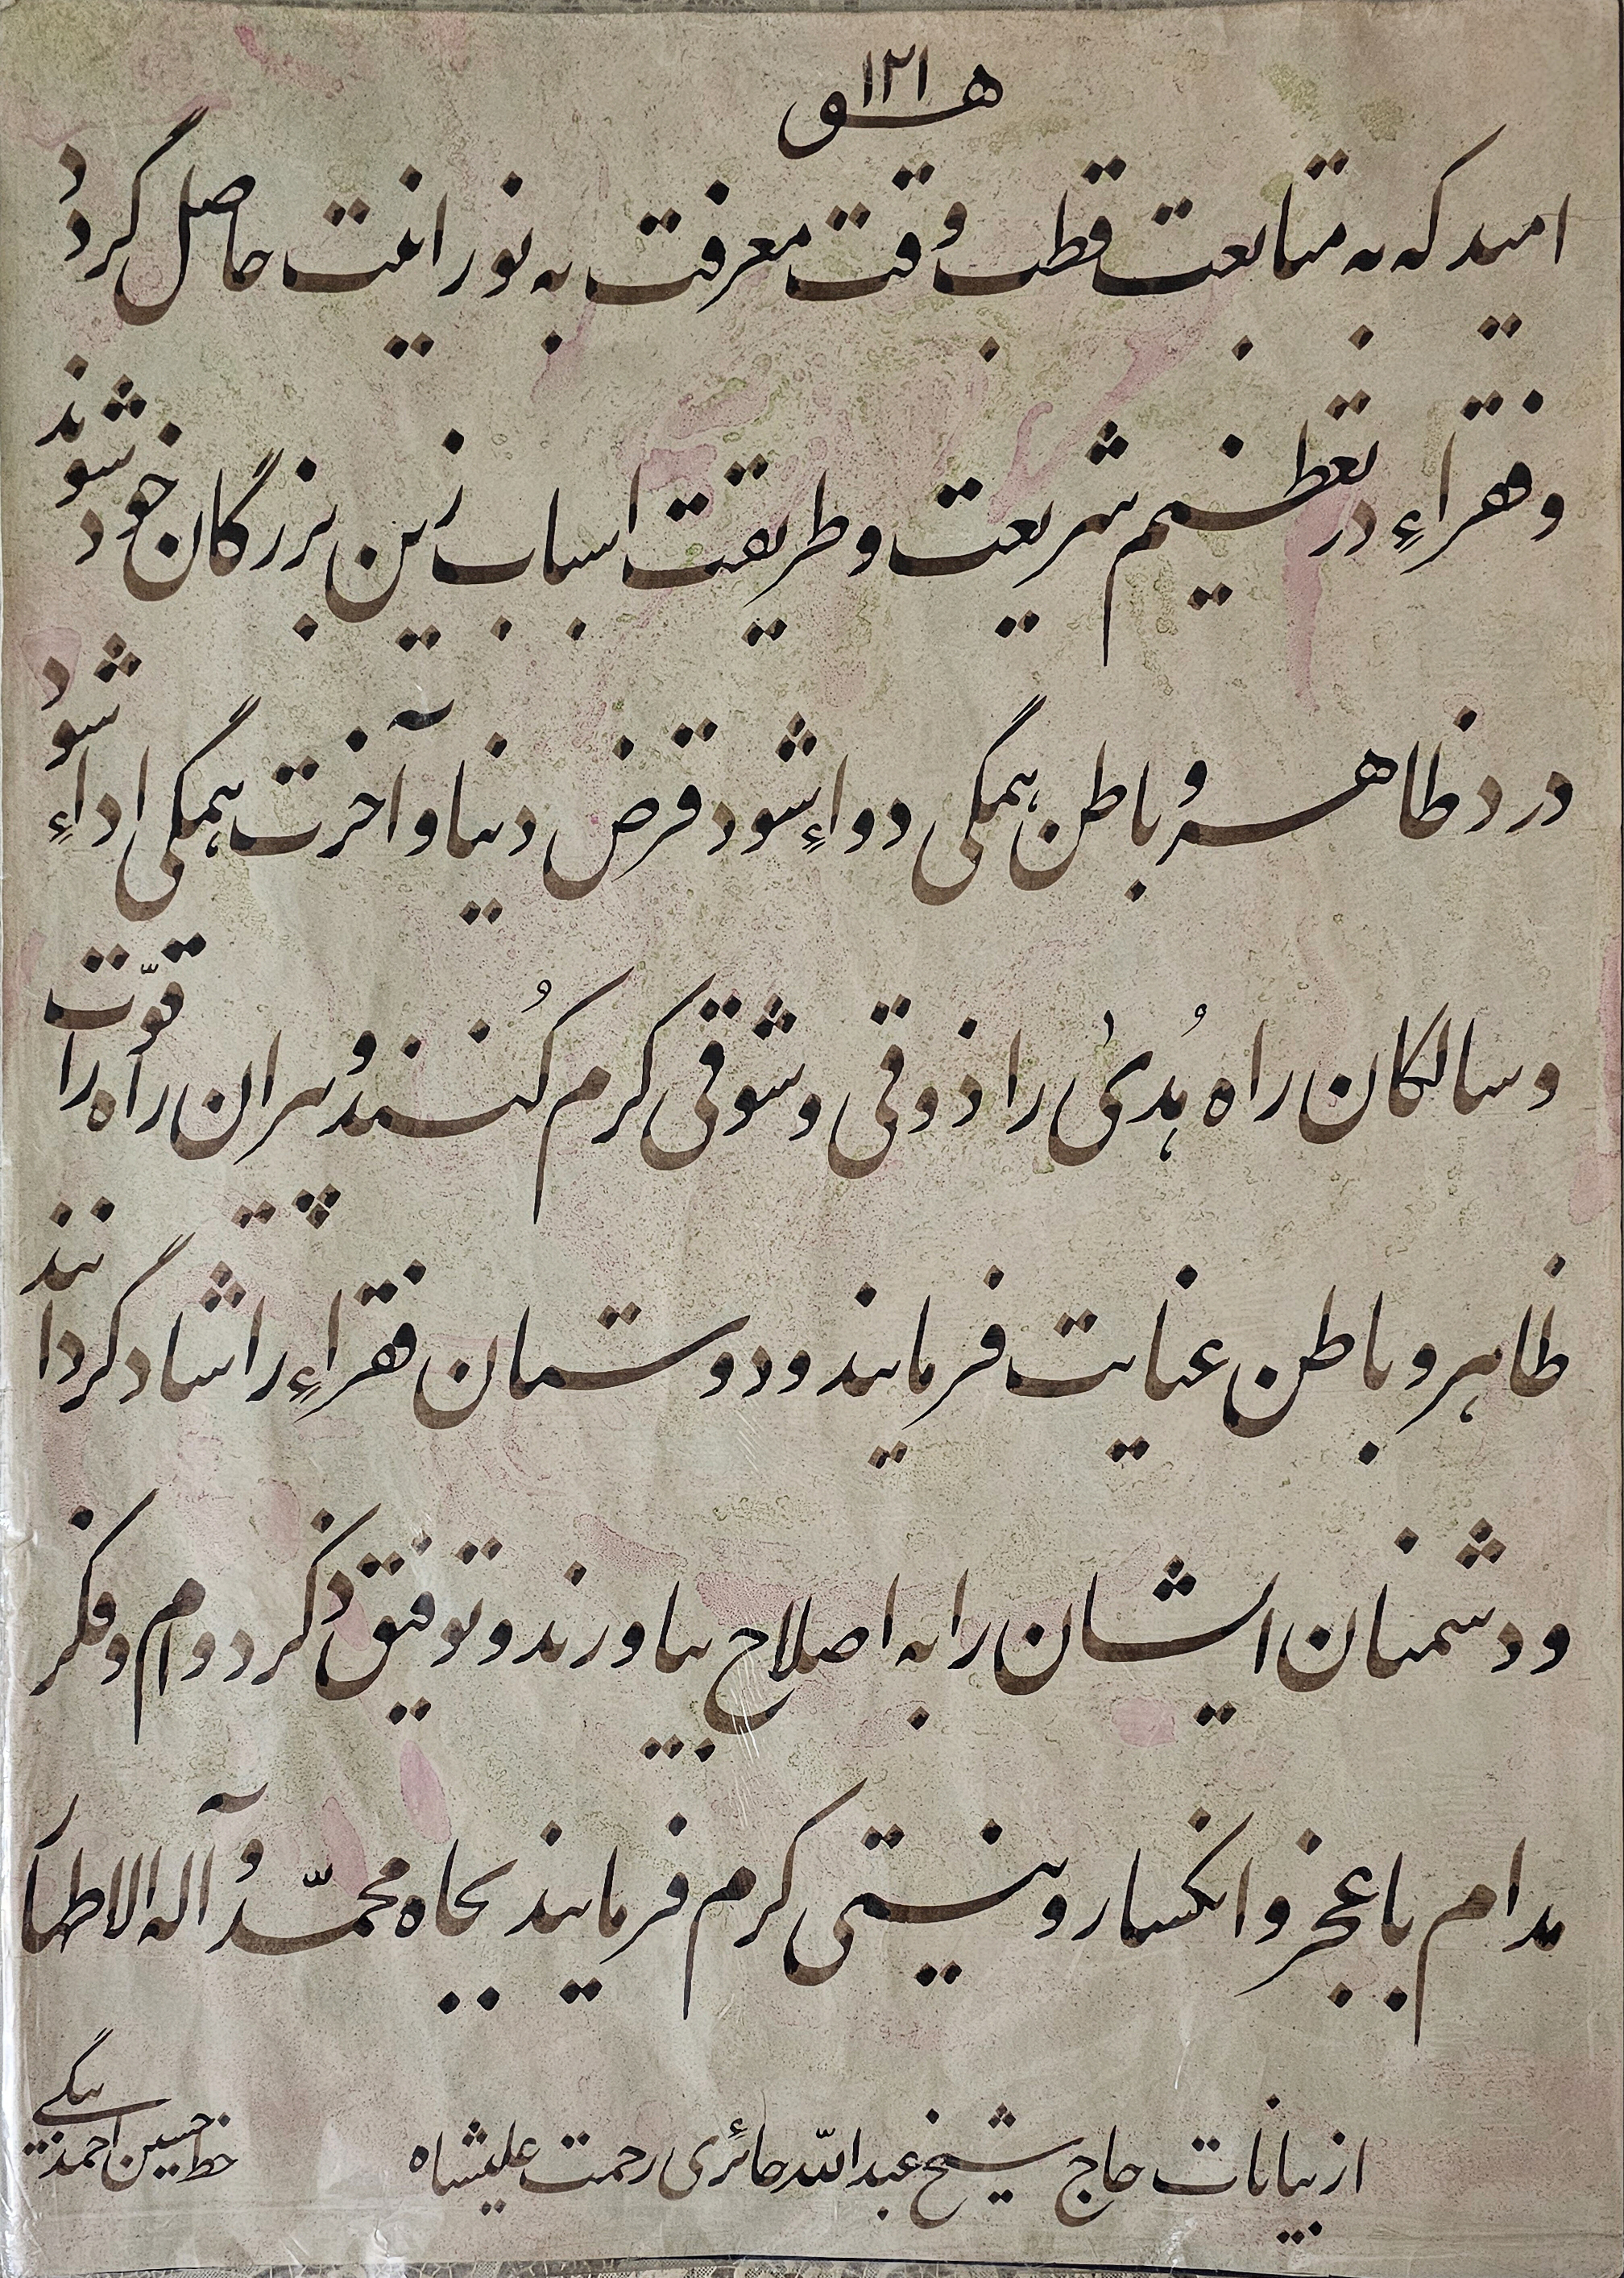 هو ۱۲۱
امید که به متابعت قطب وقت معرفت به نورانیت حاصل گردد
و فقراءِ در تعظیم شریعت و طریقت اسباب زین بزرگان خود شوند
درد ظاهر و باطن همگی دواءِ شود قرض دنیا و آخرت همگی اداءِ شود
و سالکان راه هُدیٰ را ذوقی و شوقی کرم کُنند و پیران راه را قوّت
ظاهر و باطن عنایت فرمایند و دوستان فقراءِ را شاد گردانند
و دشمنان ایشان را به اصلاح بیاورند و توفیق ذکر دوام و فکر
مدام با عجز و انکسار و نیستی کرم فرمایند بجاه محمّد و آله الاطهار
از بیانات حاج شیخ عبدالله حائری رحمت علیشاه
خط حسین احمدی